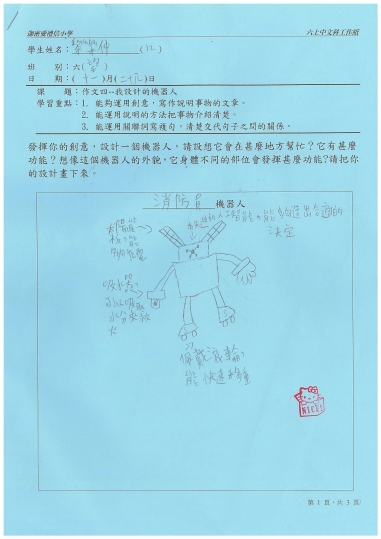 鄧肇堅維禮信小學 六上中文科工作紙
學生姓名：(12)
班 別：六(望)
日 期：(十一)月(二十九)日
課 題：作文四--我設計的機器人
學習重點：1. 能夠運用創意，寫作說明事物的文章。
2. 能運用說明的方法把事物介紹清楚。
3. 能運用關聯詞寫複句，清楚交代句子之間的關係。
發揮你的創意，設計一個機器人，請設想它會在甚麼地方幫忙？它有甚麼
功能？想像這個機器人的外貌，它身體不同的部位會發揮甚麼功能？請把你
的設計畫下來。
消防員 機器人
人工智能，能夠做出合適的
決定
太陽能
板，能
吸水器
可以吸取
水分來救
火
佩戴滾輪
能快速移動
NICE!
第 1 頁，共 3 頁